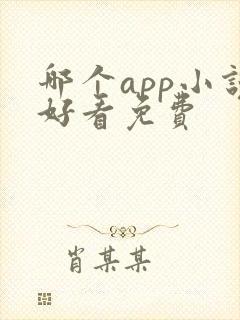 哪个app小说
好看免费
肖某某